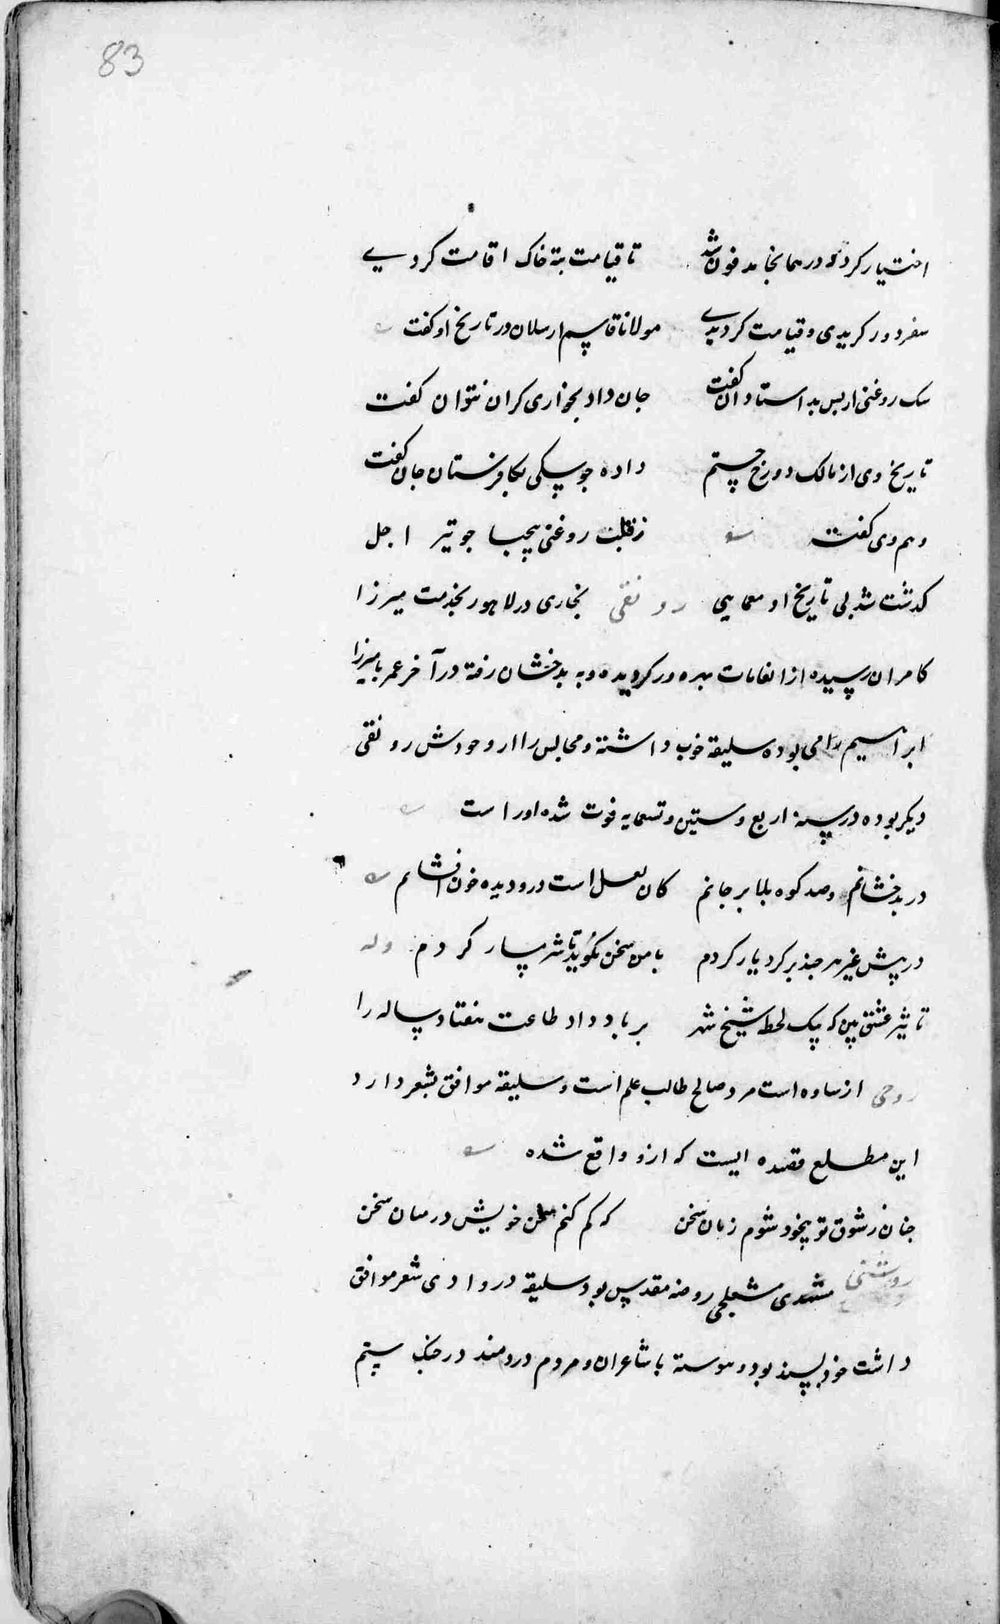 83
اختیار کرده در همانجا مدفون شد تا قیامت بته خاک اقامت کردیے
سفر دور کریدی و قیامت کردیدے مولانا قاسم ارسلان در تاریخ او کفت
سک روغنی از بس بد استادان کفت جان داد بخواری کران نتوان کفت
تاریخ وی از مالک دوزخ جستم داده جو سکی بکافرستان جان کفت
و هم وی کفته ز قلبت روغنی بیحیا جو تیر اجل
کذشت شد پی تاریخ او معمایی رونقی بخاری در لاهور بخدمت میرزا
کامران رسیده از انعامات بهره ور کردیده و به بدخشان رفته در آخر عمر با میرزا
ابراسیم رامی بوده سلیقه خوب داشته و مجالس را از وجودش رونقی
دیکر بوده در سنه اربع و ستین و تسعمایه فوت شده اوراست
در بدخشانم و صد کوه بلا بر جانم کان لعل است درو دیده خون افشانم
در پیش غیر هر جند بر کرد یار کردم با من سخن نکوید تا شرمسار کردم وله
تاثیر عشق بین که بیک لحظ شیخ شهر بر باد داد طاعت هفتاد ساله را
روحی از ساوه است مرد صالح طالب علم است و سلیقه موافق بشعر دارد
این مطلع قصیده ایست که ازو واقع شده
جنان ز شوق تو بیخود شوم زمان سخن که کم کنم سخن خویش در میان سخن
روشنی مشهدی مشعلجی روضه مقدس بود سلیقه در وادی شعر موافق
داشت خود پسند بود و موسته با شاعران و مردم دردمند در جنک و ستم